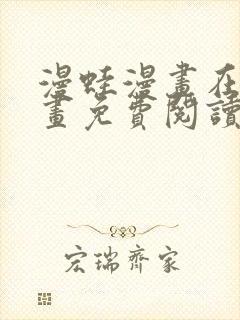 漫蛙漫畫在
畫免費閱讀
宏瑞齊家